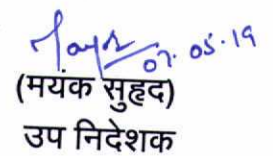 07.05.19
(मयंक सुहृद)
उप निदेशक